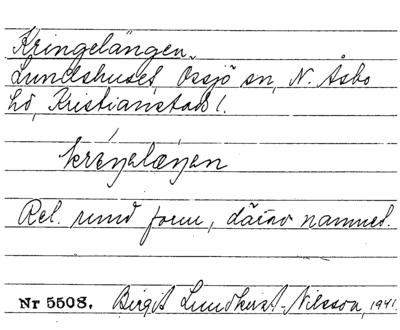 Kringelängen
Lundshuset, Össjö sn, N. Åsbo
hd, Kristianstads l.
kréŋəlæŋən
Rel. rund form, därav namnet.
Nr 5508. Birgit Lundkvist-Nilsson, 1941.